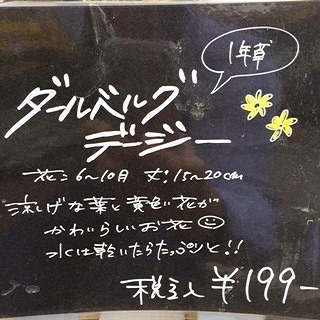 1年草
ダールベルグ
デージー
花：6〜10月 丈：15〜20cm
涼しげな葉と黄色い花が
かわいらしいお花
水は乾いたらたっぷりと！！
税込 ¥199-